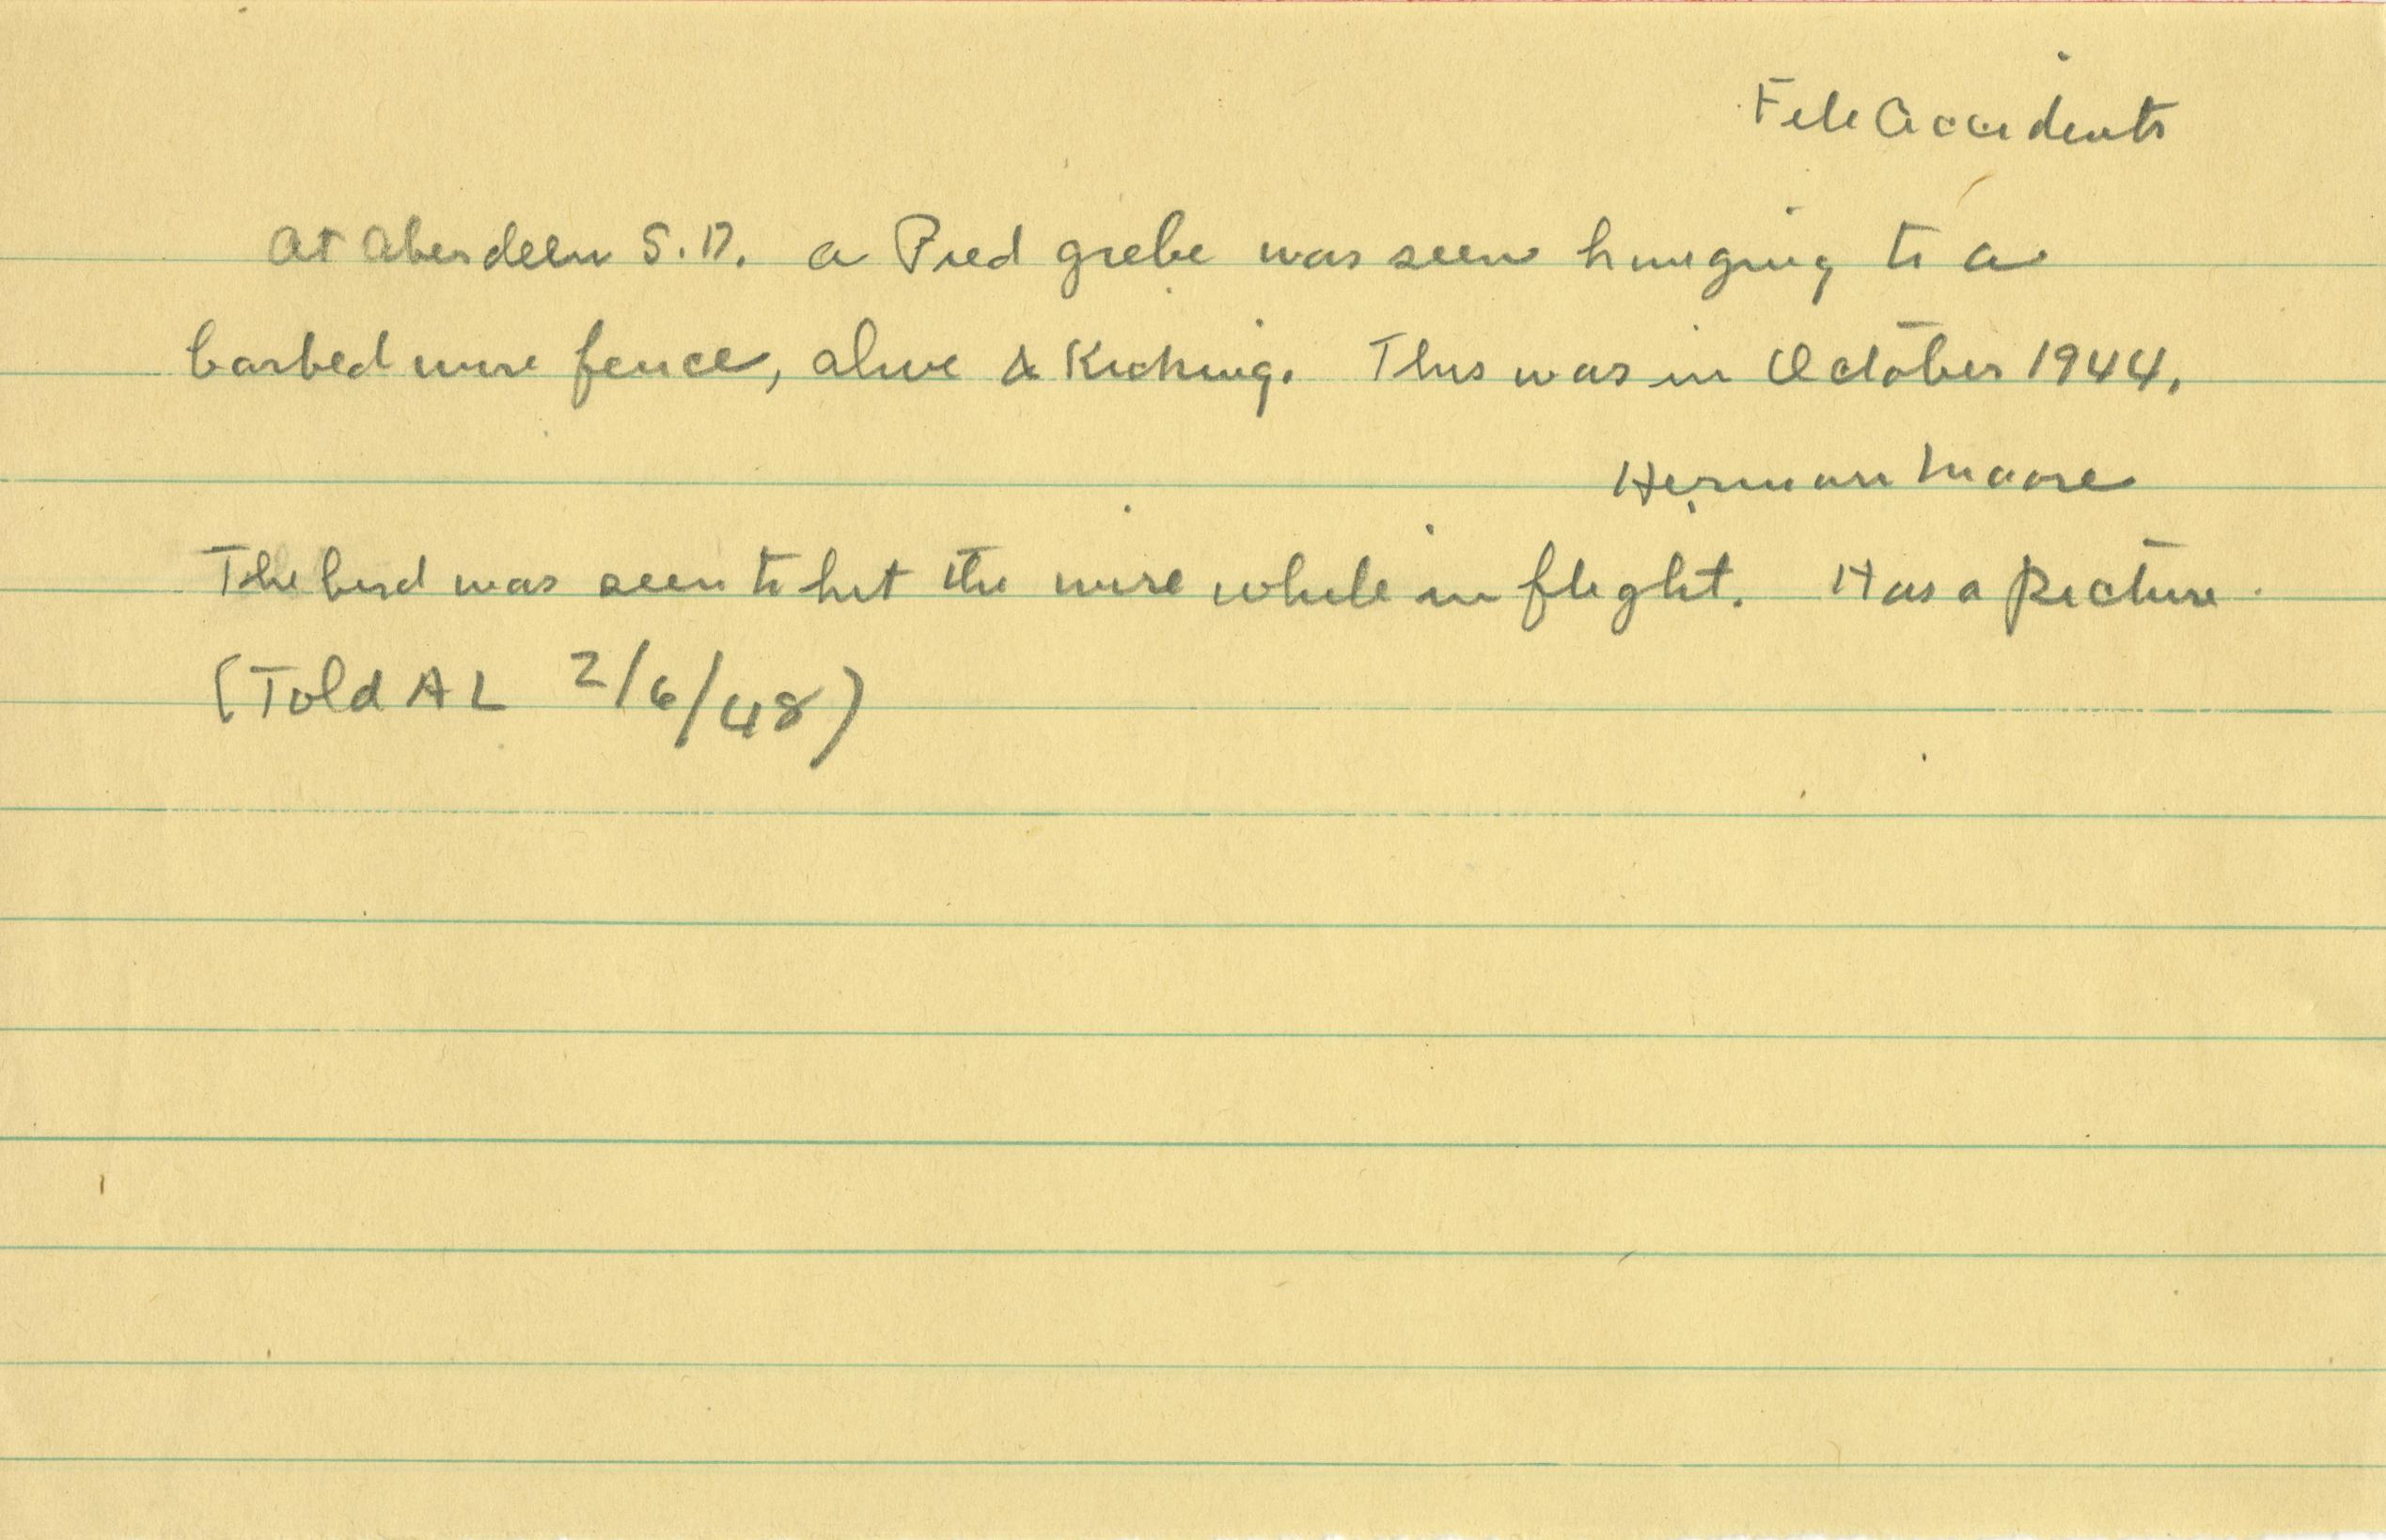 File Accidents
At Aberdeen S.D. a Pied grebe was seen hanging to a
barbed wire fence, alive & kicking. This was in October 1944.
Herman Moore
The bird was seen to hit the wire while in flight. Has a picture.
(Told AL 2/6/48)